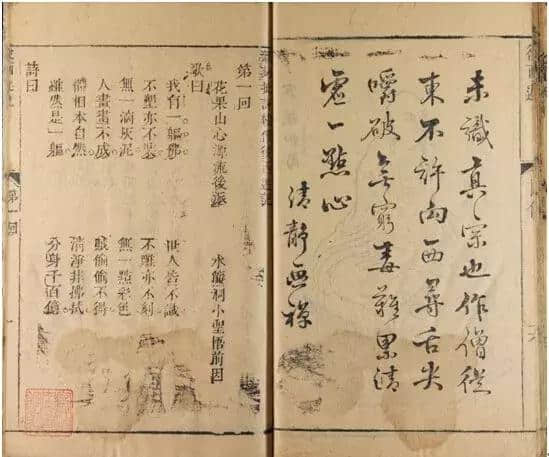 未識真宗也作僧從
東不許向西尋舌尖
嚼破無窮毒難累清
虛一點心
清靜無禪
第一回
花果山心源流後派 水簾洞小聖悟前因
歌曰
我有一軀佛 世人皆不識
不塑亦不裝 不雕亦不刻
無一滴灰泥 無一點彩色
人畫畫不成 賊偷偷不得
體相本自然 清淨非拂拭
雖然是一軀 分身千百億
詩曰
第一回